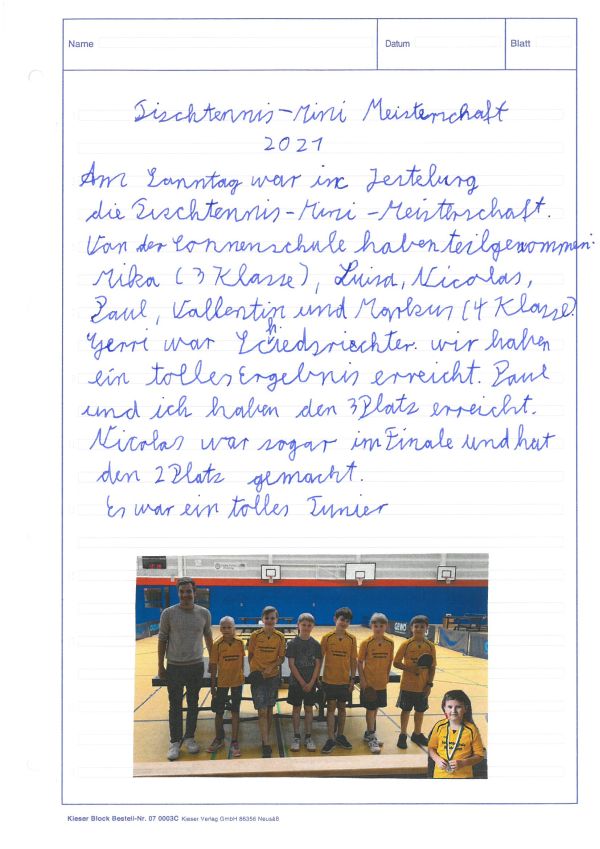 Name
Datum
Blatt
Tischtennis-Mini Meisterschaft
2021
Am Sanntag war in Jesteburg
die Tischtennis-Mini-Meisterschaft.
Van der Sonnenschule haben teilgenommen:
Mika (3 Klasse), Luisa, Nicolas,
Paul, Vallentin und Markus (4 Klasse).
Gerri war Schiedsriechter. wir haben
ein tolles Ergebnis erreicht. Paul
und ich haben den 3 Platz erreicht.
Nicolas war sogar im Finale und hat
den 2 Platz gemacht.
Es war ein tolles Tunier
GEWO
Kieser Block Bestell-Nr. 07 0003C Kieser Verlag GmbH 86356 Neusäß